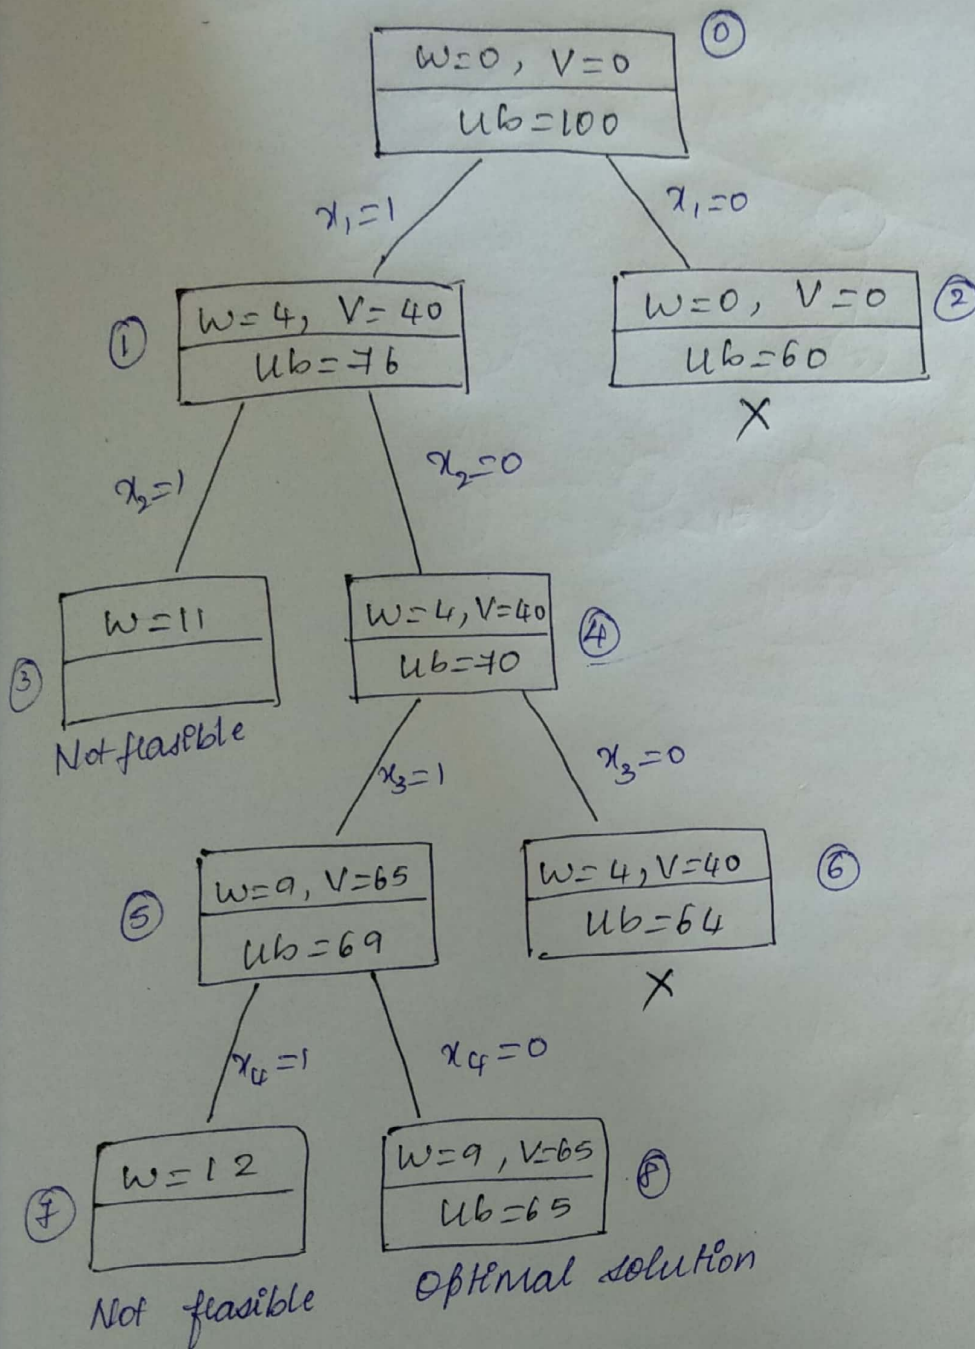 0
W=0, V=0
Ub=100
x₁=1
x₁=0
1
W=4, V=40
Ub=76
W=0, V=0
2
Ub=60
X
x₂=1
x₂=0
3
W=11
Not feasible
W=4, V=40
4
Ub=70
x₃=1
x₃=0
5
W=9, V=65
Ub=69
W=4, V=40
6
Ub=64
X
x₄=1
x₄=0
7
W=12
Not feasible
W=9, V=65
8
Ub=65
Optimal solution